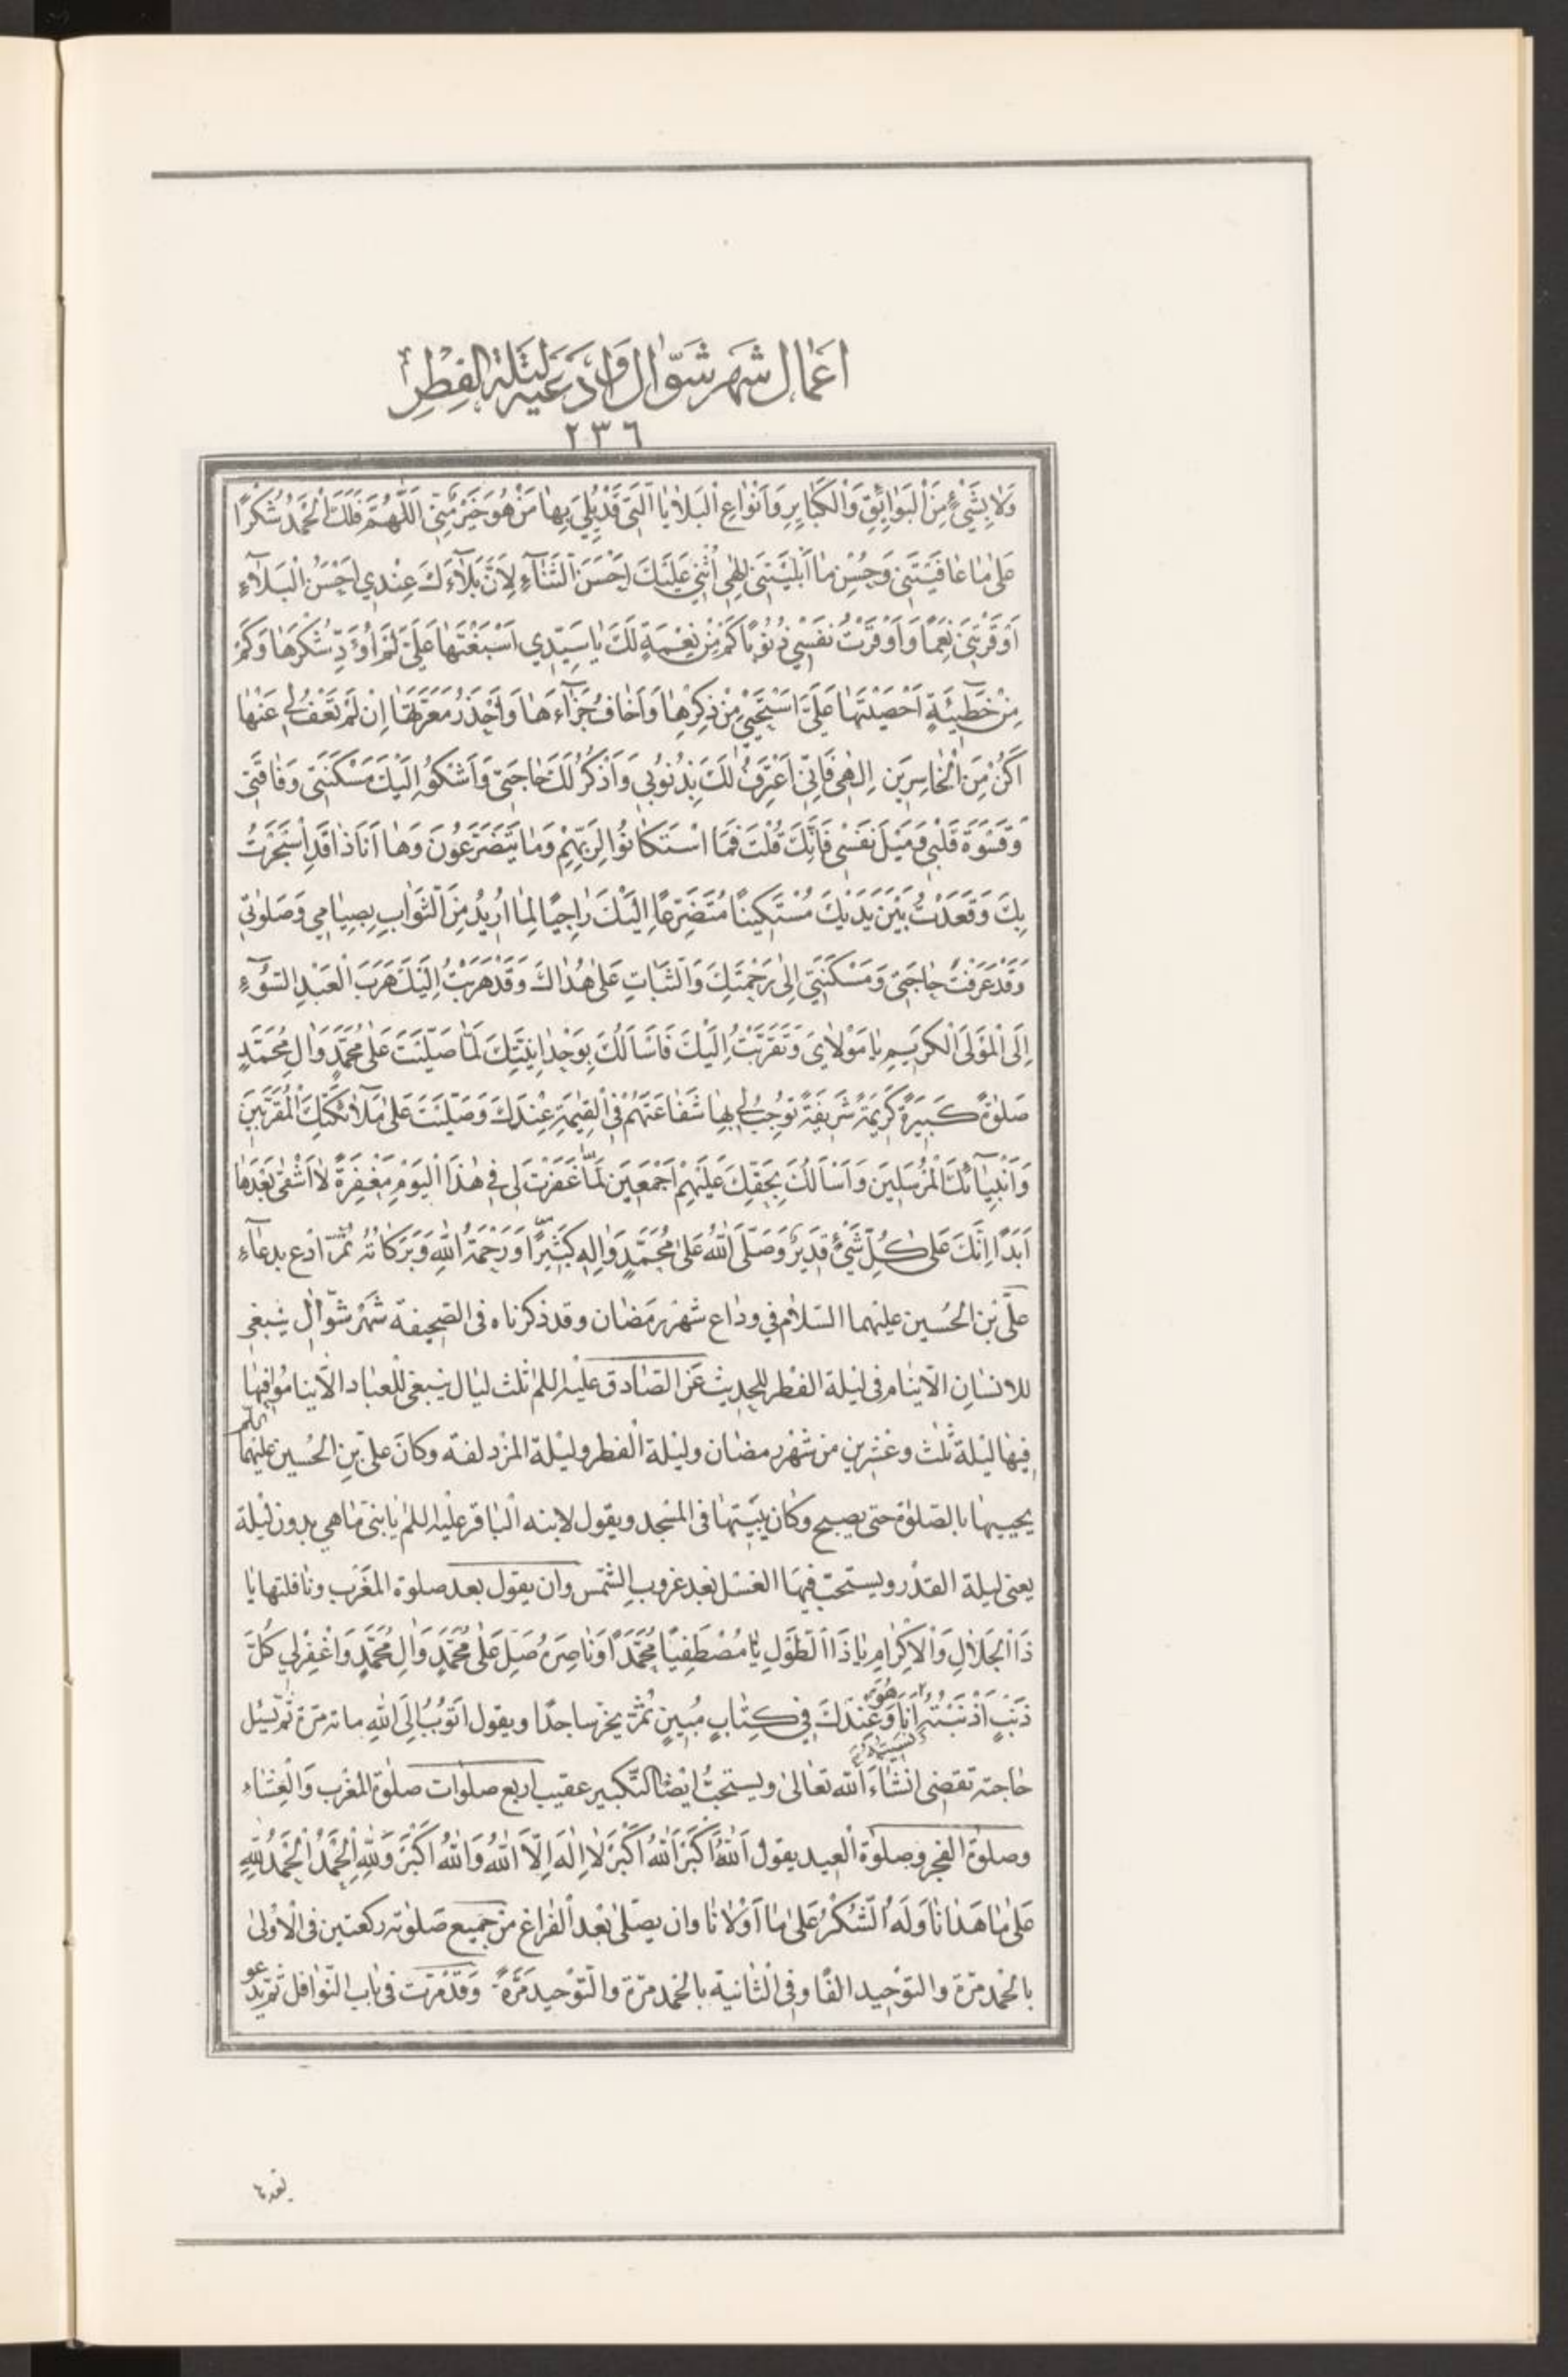 اَعْمٰال شَهر شَوّال وَاَدْعَيَه لَيْلَة الفِطْرِ
٢٣٦
وَلاٰ بِشَيْءٍ مِنَ الْبَوٰائِقِ وَالْكَبٰايِرِ وَاَنْوٰاعِ الْبَلاٰيٰا الَّتى قَدْ بُلِيَ بِهٰا مَنْ هُوَ خَيْرٌ مِنّى اَللّٰهُمَّ فَلَكَ الْحَمْدُ شُكْرًا
عَلىٰ مٰا عٰافَيْتَنى وَحُسْنِ مٰا اَبْلَيْتَنى اِلٰهى اُثْنى عَلَيْكَ اَحْسَنَ الثَّنٰآءِ لِاَنَّ بَلآٰءَكَ عِنْدي اَحْسَنُ الْبَلآٰءِ
اَوْقَرْتَنى نِعَمًا وَاَوْقَرْتُ نَفْسى ذُنُوبًا كَمْ مِنْ نِعْمَةٍ لَكَ يٰا سَيِّدي اَسْبَغْتَهٰا عَلَيَّ لَمْ اُؤَدِّ شُكْرَهٰا وَكَمْ
مِنْ خَطيئَةٍ اَحْصَيْتَهٰا عَلَيَّ اَسْتَحْيى مِنْ ذِكْرِهٰا وَاَخٰافُ جَزٰآءَهٰا وَاَحْذَرُ مَعَرَّتَهٰا اِنْ لَمْ تَعْفُ لى عَنْهٰا
اَكُنْ مِنَ الْخٰاسِرينَ اِلٰهى فَاِنّى اَعْتَرِفُ لَكَ بِذُنُوبى وَاَذْكُرُ لَكَ حٰاجَتى وَاَشْكُو اِلَيْكَ مَسْكَنَتى وَفٰاقَتى
وَقَسْوَةَ قَلْبى وَمَيْلَ نَفْسى فَاِنَّكَ قُلْتَ فَمَا اسْتَكٰانُوا لِرَبِّهِمْ وَمٰا يَتَضَرَّعُونَ وَهٰا اَنَا ذٰا قَدِ اسْتَجَرْتُ
بِكَ وَقَعَدْتُ بَيْنَ يَدَيْكَ مُسْتَكينًا مُتَضَرِّعًا اِلَيْكَ رٰاجِيًا لِمٰا اُريدُ مِنَ الثَّوٰابِ بِصِيٰامي وَصَلوٰتى
وَقَدْ عَرَفْتَ حٰاجَتى وَمَسْكَنَتى اِلىٰ رَحْمَتِكَ وَالثَّبٰاتِ عَلىٰ هُدٰاكَ وَقَدْ هَرَبْتُ اِلَيْكَ هَرَبَ الْعَبْدِ السُّوٓءِ
اِلَى الْمَوْلَى الْكَريمِ يٰا مَوْلاٰيَ وَتَقَرَّبْتُ اِلَيْكَ فَاَسْاَلُكَ بِوَحْدٰانِيَّتِكَ لَمّٰا صَلَّيْتَ عَلىٰ مُحَمَّدٍ وَاٰلِ مُحَمَّدٍ
صَلوٰةً كَبيرَةً كَريمَةً شَريفَةً تُوجِبُ لى بِهٰا شَفٰاعَتَهُمْ فِى الْقِيٰمَةِ عِنْدَكَ وَصَلَّيْتَ عَلىٰ مَلآٰئِكَتِكَ الْمُقَرَّبينَ
وَاَنْبِيٰآئِكَ الْمُرْسَلينَ وَاَسْاَلُكَ بِحَقِّكَ عَلَيْهِمْ اَجْمَعينَ لَمّٰا غَفَرْتَ لى فى هٰذَا الْيَوْمِ مَغْفِرَةً لاٰ اَشْقىٰ بَعْدَهٰا
اَبَدًا اِنَّكَ عَلىٰ كُلِّ شَيْءٍ قَديرٌ وَصَلَّى اللهُ عَلىٰ مُحَمَّدٍ وَاٰلِهِ كَثيرًا وَرَحْمَةُ اللهِ وَبَرَكٰاتُهُ ثُمَّ ادْع بدعآء
علىّ بْن الحُسين عليهما السّلام في وداع شهر رمضان وقد ذكرناه فى الصّحيفة شَهْر شَوّال ينبغى
للانسٰان الّا ينٰام فى ليْلة الفطر للحديث عَن الصّادق عليه السلم ثلث ليٰال ينبغى للعبٰاد الّا ينامُوا فيهٰا
فيهٰا ليْلة ثلث وعشرين من شهر رمضان وليْلة الفطر وليْلة المزدلفة وكانَ علىّ بن الحُسين عليهمٰا السلم
يحييهٰا بالصّلوٰة حتى يصبح وكان يبيتهٰا فى المسْجد ويقول لابنه الباقر عليه السلم يٰا بنىّ مٰا هى بدون ليْلة
يعنى ليلة القدْر ويستحبّ فيهٰا الغسْل بَعد غروب الشّمس وان يقول بعد صلوة المغْرب ونٰافلتهٰا يٰا
ذَا الْجَلاٰلِ وَالْاِكْرٰامِ يٰا ذَا الطَّوْلِ يٰا مُصْطَفِيًا مُحَمَّدًا وَنٰاصِرَهُ صَلِّ عَلىٰ مُحَمَّدٍ وَاٰلِ مُحَمَّدٍ وَاغْفِرْ لي كُلَّ
ذَنْبٍ اَذْنَبْتُهُ اَنَا وَهُوَ عِنْدَكَ في كِتٰابٍ مُبينٍ ثمّ يخرّ ساجدًا ويقول اَتُوبُ اِلَى اللهِ ماته مَرّة ثمّ يسئل
حٰاجته تقضى انشٰاءَ الله تعٰالىٰ ويستحبّ ايضًا التّكبير عقيب اربع صلوات صلوٰة المغرب وَالعشٰاء
وصلوٰة الفجر وصلوٰة العيد يقول اَللهُ اَكْبَرُ اَللهُ اَكْبَرُ لاٰ اِلٰهَ اِلَّا اللهُ وَاللهُ اَكْبَرُ وَللهِ الْحَمْدُ اَلْحَمْدُ لِلّٰهِ
عَلىٰ مٰا هَدٰانٰا وَلَهُ الشُّكْرُ عَلىٰ مٰا اَوْلاٰنٰا وان يصلّى بعْد الفراغ من جميع صَلوٰته ركعتين فى الاوْلىٰ
بالحْمد مرّة والتّوْحيد الفًا وفى الثّانية بالحْمد مرّة والتّوْحيد مَرّةً وَقَدْ مرّت فى بٰاب النّوٰافل ثمّ يدْعو
بعدهما